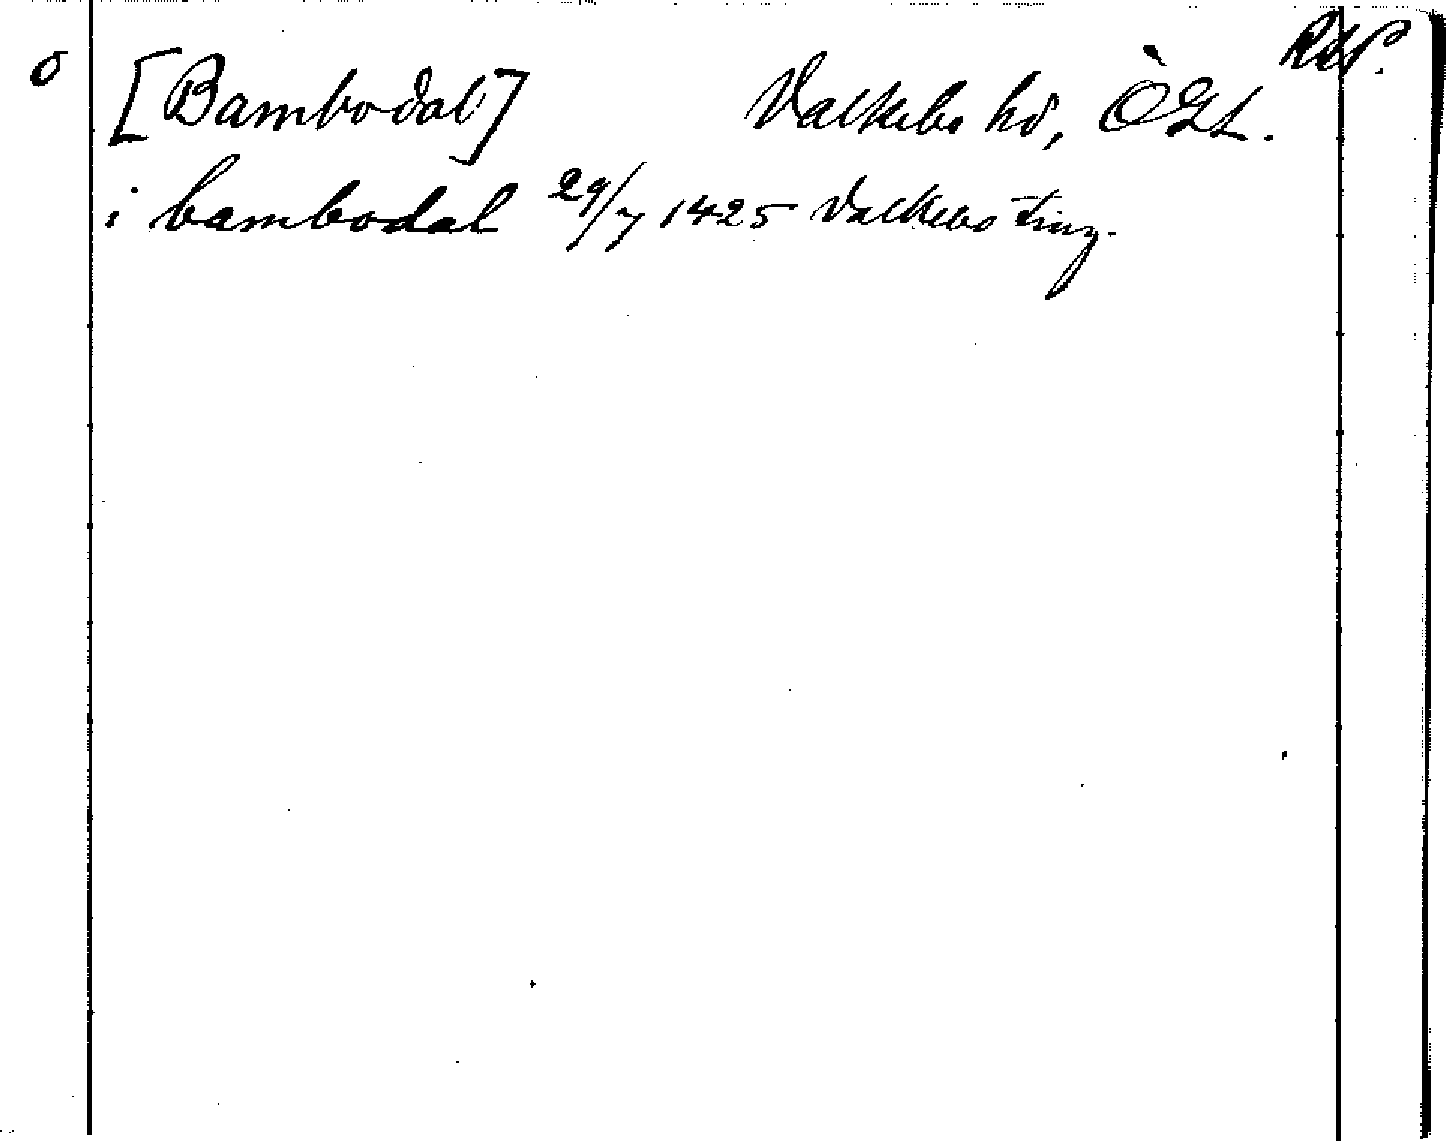 RAP.
ō [Bambodal] Valkebo hd, ÖGL.
i bambodal 29/7 1425 Valkebo ting.